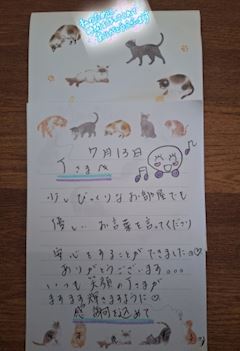 7月13日
Tさまへ
少しびっくりなお部屋でも
優しい お言葉を言ってくださり
安心をすることができました♡
ありがとうございます。。。
いつも笑顔のTさまが
ますます輝きますように♡
感謝を込めて